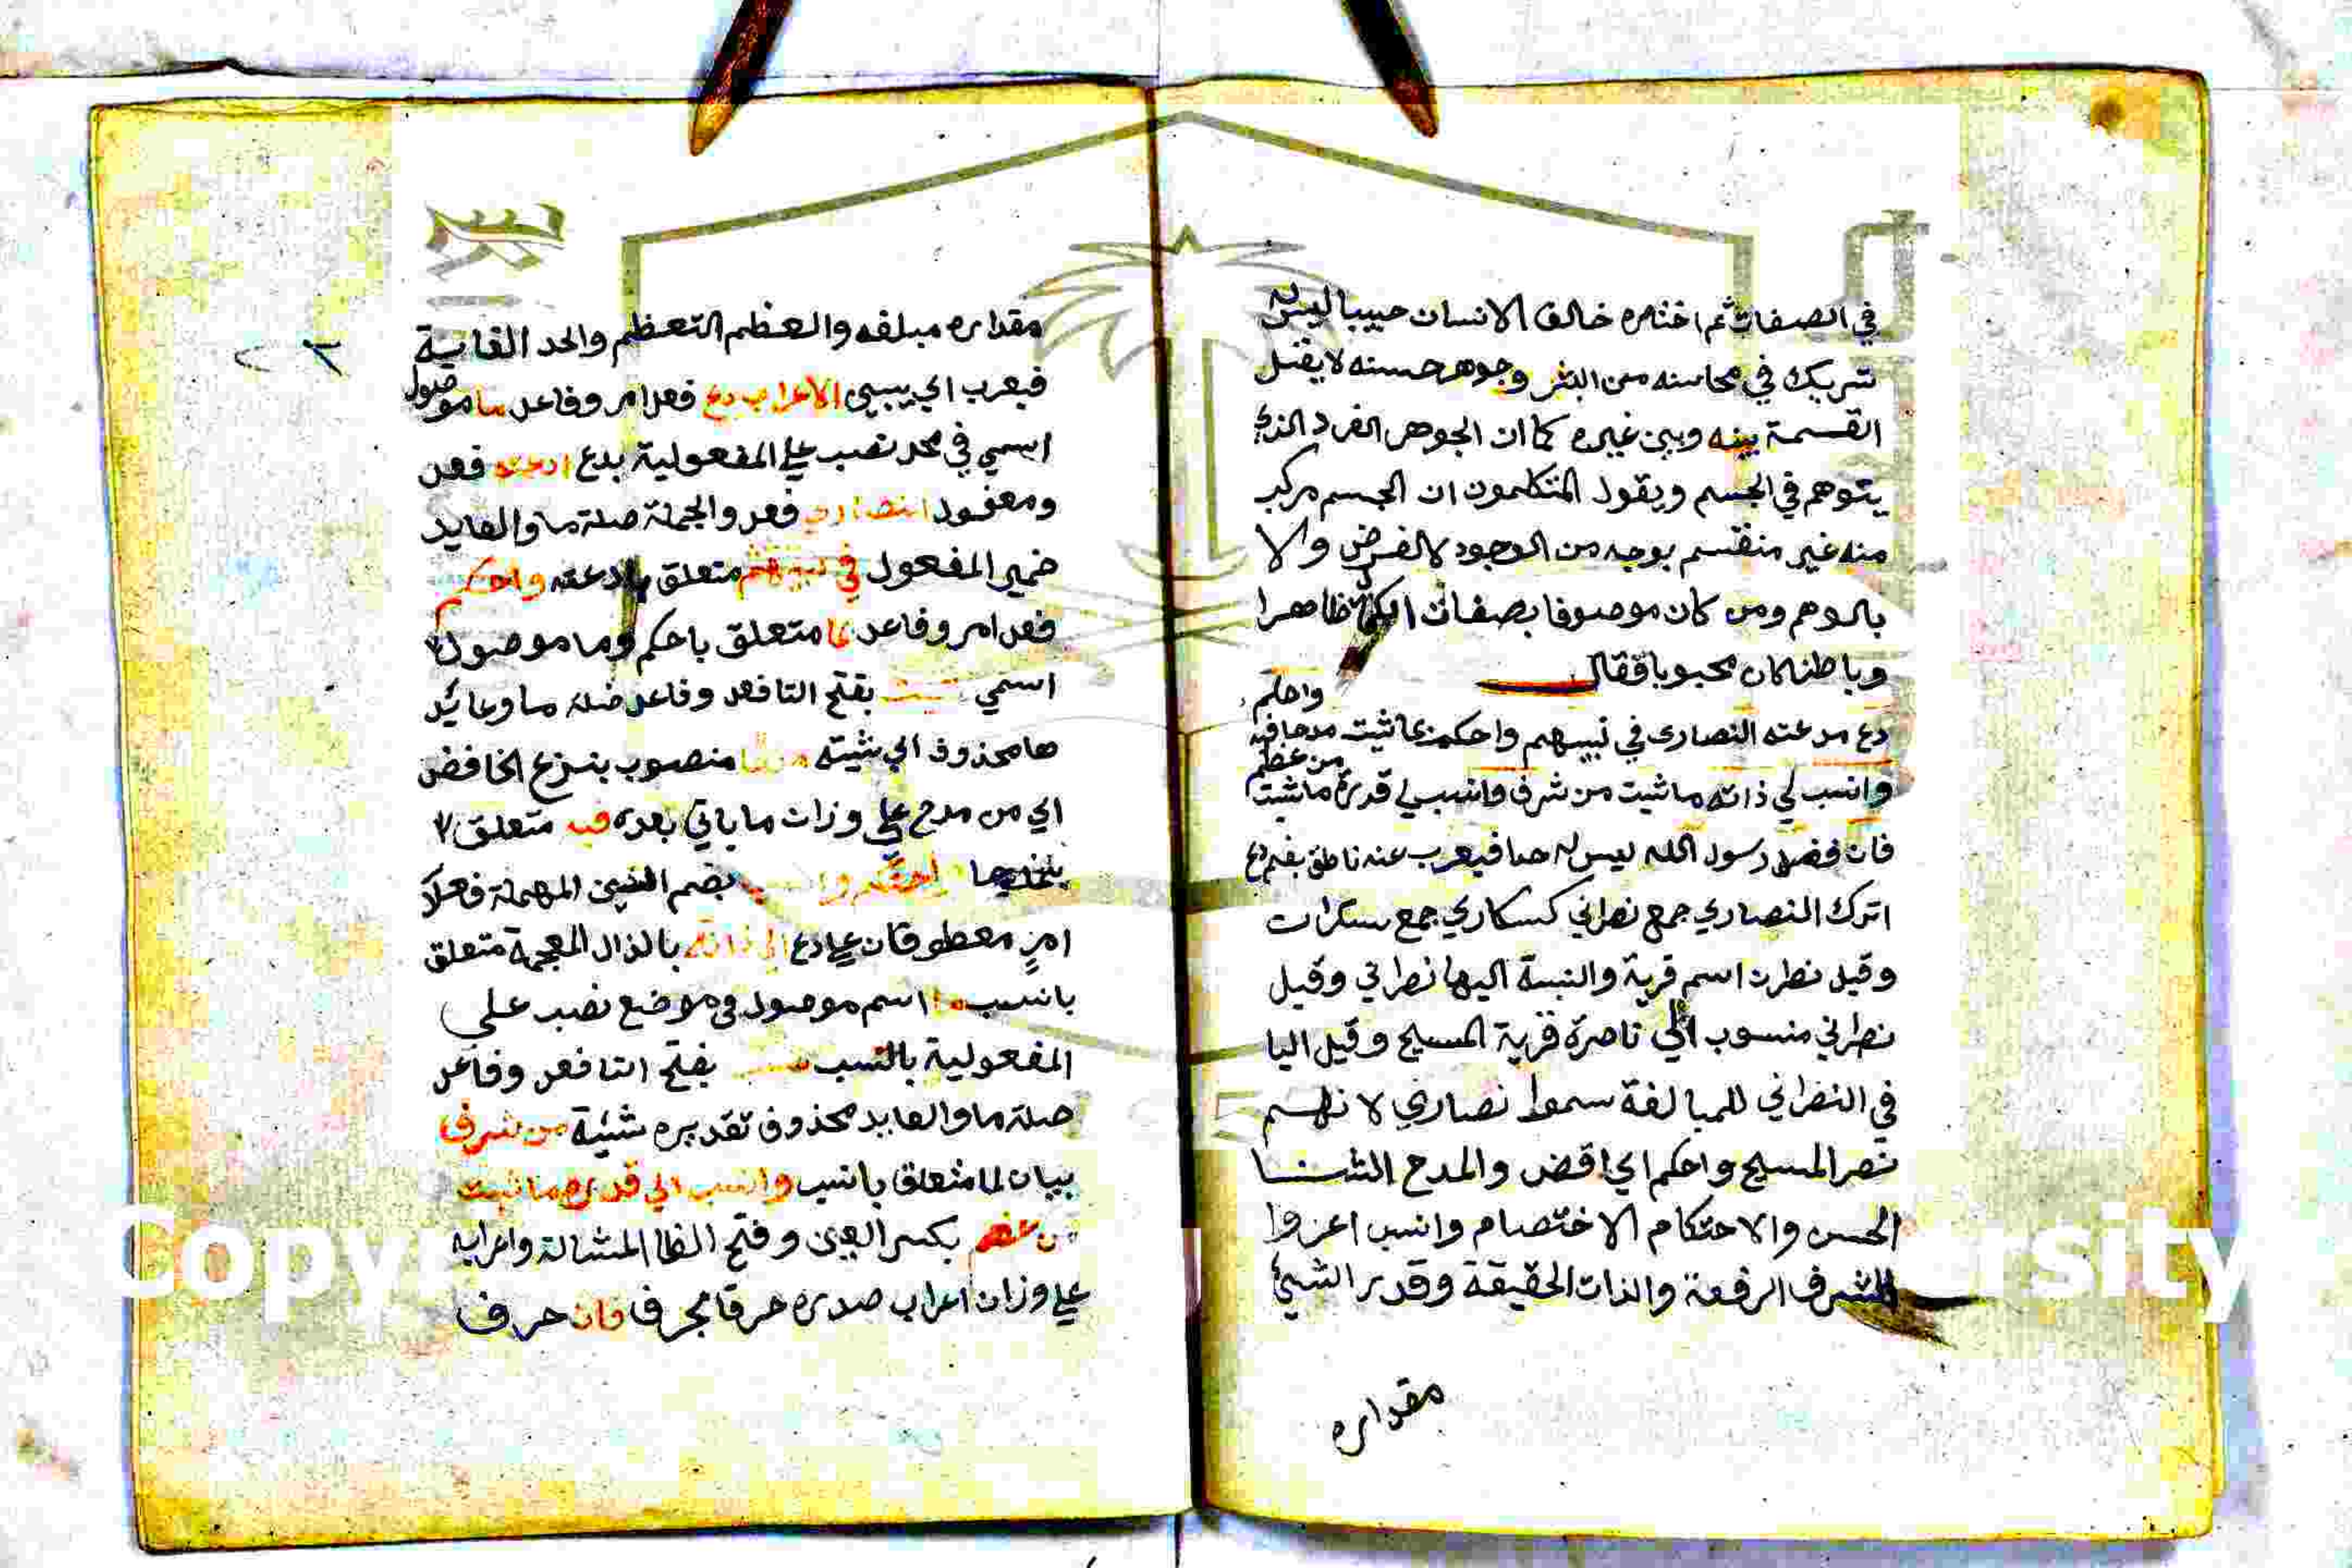 في الصفات ثم اختاره خالق الانسان حبيبا ليس له
شريك في محاسنه من البشر وجوهر حسنه لا يقبل
القسمة بينه وبين غيره كما ان الجوهر الفرد الذي
يتوهم في الجسم ويقول المتكلمون ان الجسم مركب
منه غير منقسم بوجه من الوجوه لا لفرض ولا
بالوهم ومن كان موصوفا بصفات الكمال ظاهرا
وباطنا كان محبوبا فقال
دع مدعته النصارى في نبيهم واحكم بما شيت مدحا فيه واحكم
وانسب لي ذاته ما شيت من شرف وانسب لي قدره ما شيت من عظم
فان فضل رسول الله ليس له حد فيعرب عنه ناطق بفم دع
اترك النصاري جمع نصراني كسكاري جمع سكران
وقيل نصران اسم قرية والنسبة اليها نصراني وقيل
نصراني منسوب الي ناصرة قرية المسيح وقيل اليا
في النصراني للمبالغة سموا نصاري لانهم
نصر المسيح واحكم اي اقض والمدح الثنا
الحسن والاحتكام الاختصام وانسب اعزوا
الشرف الرفعة والذات الحقيقة وقدر الشيئ
مقداره
مقداره مبلغه والعظم التعظم والحد الغاية
فيعرب اي يبين الاعراب دع فعل امر وفاعل ما موصول
اسمي في محل نصب علي المفعولية بدع ادعته فعل
ومفعول النصاري فعل والجملة صلة ما والعايد
ضمير المفعول في نبيهم متعلق بادعته واحكم
فعل امر وفاعل بما متعلق باحكم وما موصول
اسمي شيت بفتح التا فعل وفاعل صلة ما وعايد
ها محذوف اي شيته مدحا منصوب بنزع الخافض
اي من مدح علي وزان ما ياتي بعده فيه متعلق
بمدحا واحتكم وانسب بضم السين المهملة فعلا
امر معطوفان علي دع الي ذاته بالذال المعجمة متعلق
بانسب ما اسم موصول في موضع نصب علي
المفعولية بانسب شيت بفتح التا فعل وفاعل
صلة ما والعايد محذوف تقديره شيئة من شرف
بيان لما متعلق بانسب وانسب الي قدره ما شيت
من عظم بكسر العين وفتح الظا المشالة واعرابه
علي وزان اعراب صدره حرفا بحرف فان حرف